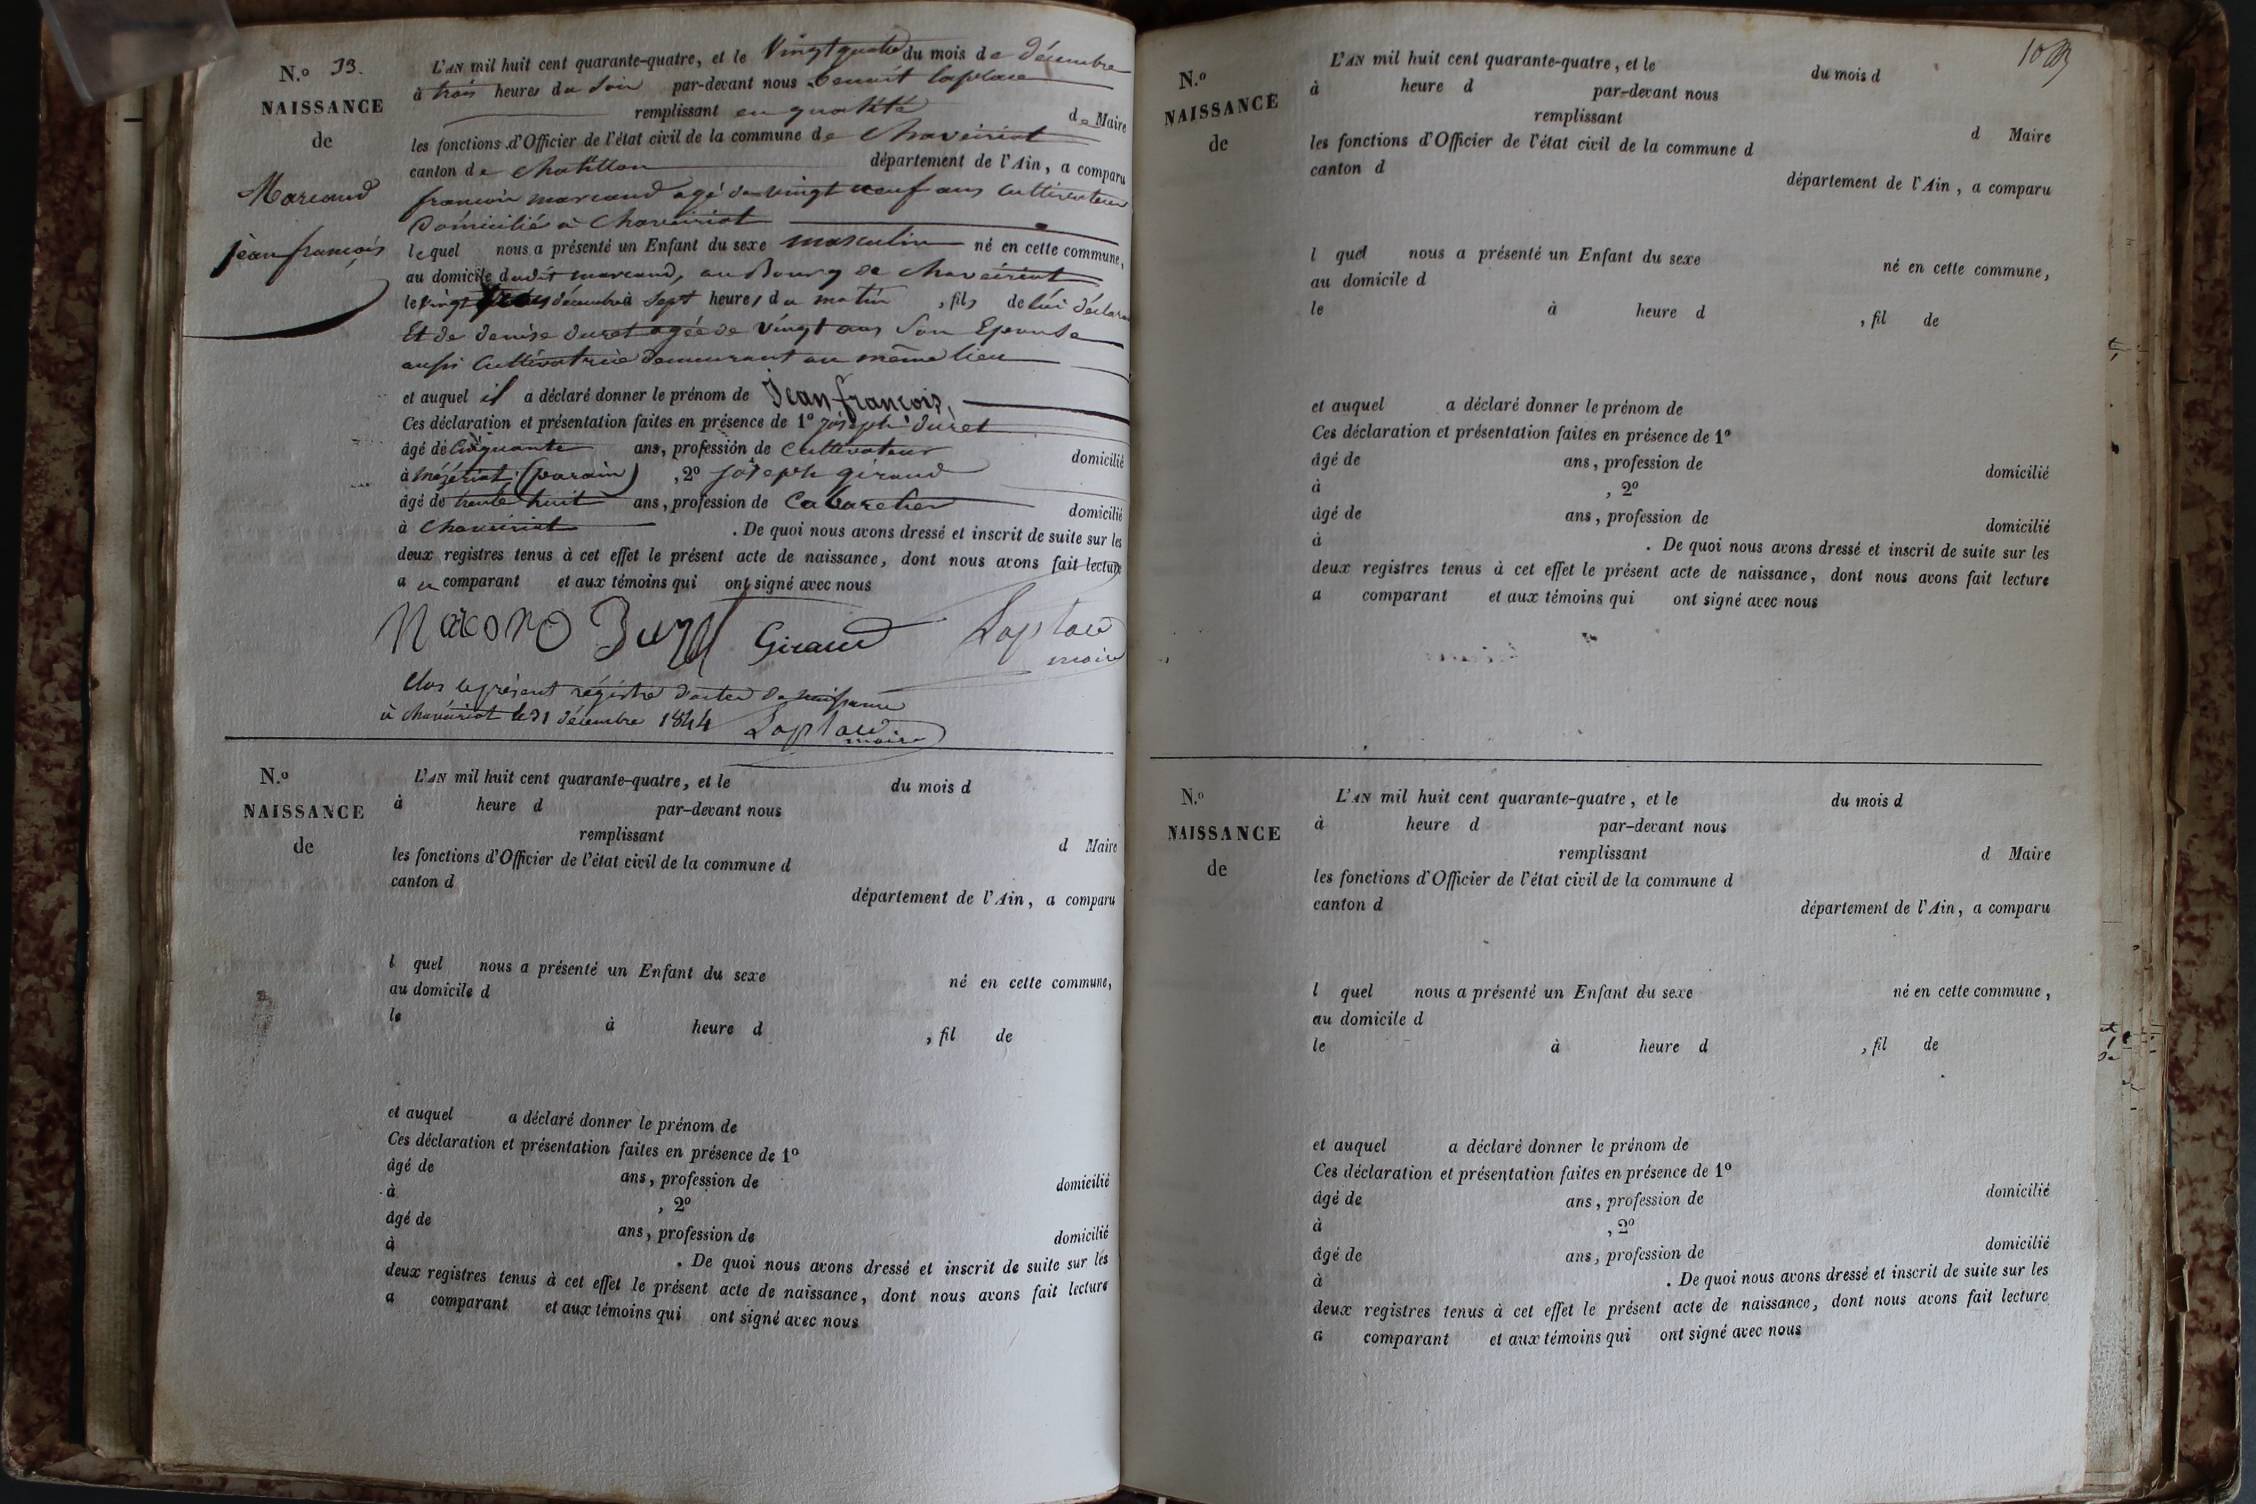 N.º 33.
NAISSANCE
de
Marcaud
jean françois
L'AN mil huit cent quarante-quatre, et le Vingt quatre du mois de décembre
à trois heures du soir par-devant nous benoit laplace
remplissant en qualité de Maire
les fonctions d'Officier de l'état civil de la commune de Chaveiriat
canton de chatillon département de l'Ain, a comparu
françois marcaud agé de vingt neuf ans cultivateur
domicilié à Chaveiriat
lequel nous a présenté un Enfant du sexe masculin né en cette commune,
au domicile dudit marcaud, au Bourg de chaveiriat
le vingt décembre à sept heures du matin , fils de lui déclarant
Et de denise duret agée de vingt ans son Epouse
aussi cultivatrice demeurant au même lieu
et auquel il a déclaré donner le prénom de Jean françois,
Ces déclaration et présentation faites en présence de 1º joseph duret
âgé de cinquante ans, profession de cultivateur domicilié
à mézériat (parain) , 2º joseph giraud
âgé de trente huit ans, profession de Cabaretier domicilié
à chaveiriat . De quoi nous avons dressé et inscrit de suite sur les
deux registres tenus à cet effet le présent acte de naissance, dont nous avons fait lecture
au comparant et aux témoins qui ont signé avec nous
Duret Giraud Laplace
maire
Clos le présent régistre d'actes de naissance
à chaveiriat le 31 décembre 1844 Laplace
maire
N.º
NAISSANCE
de
L'AN mil huit cent quarante-quatre, et le du mois d
à heure d par-devant nous
remplissant d Maire
les fonctions d'Officier de l'état civil de la commune d
canton d département de l'Ain, a comparu
l quel nous a présenté un Enfant du sexe né en cette commune,
au domicile d
le à heure d , fil de
et auquel a déclaré donner le prénom de
Ces déclaration et présentation faites en présence de 1º
âgé de ans, profession de domicilié
à , 2º
âgé de ans, profession de domicilié
à . De quoi nous avons dressé et inscrit de suite sur les
deux registres tenus à cet effet le présent acte de naissance, dont nous avons fait lecture
a comparant et aux témoins qui ont signé avec nous
N.º
NAISSANCE
de
L'AN mil huit cent quarante-quatre, et le du mois d
à heure d par-devant nous
remplissant d Maire
les fonctions d'Officier de l'état civil de la commune d
canton d département de l'Ain, a comparu
l quel nous a présenté un Enfant du sexe né en cette commune,
au domicile d
le à heure d , fil de
et auquel a déclaré donner le prénom de
Ces déclaration et présentation faites en présence de 1º
âgé de ans, profession de domicilié
à , 2º
âgé de ans, profession de domicilié
à . De quoi nous avons dressé et inscrit de suite sur les
deux registres tenus à cet effet le présent acte de naissance, dont nous avons fait lecture
a comparant et aux témoins qui ont signé avec nous
N.º
NAISSANCE
de
L'AN mil huit cent quarante-quatre, et le du mois d
à heure d par-devant nous
remplissant d Maire
les fonctions d'Officier de l'état civil de la commune d
canton d département de l'Ain, a comparu
l quel nous a présenté un Enfant du sexe né en cette commune,
au domicile d
le à heure d , fil de
et auquel a déclaré donner le prénom de
Ces déclaration et présentation faites en présence de 1º
âgé de ans, profession de domicilié
à , 2º
âgé de ans, profession de domicilié
à . De quoi nous avons dressé et inscrit de suite sur les
deux registres tenus à cet effet le présent acte de naissance, dont nous avons fait lecture
a comparant et aux témoins qui ont signé avec nous